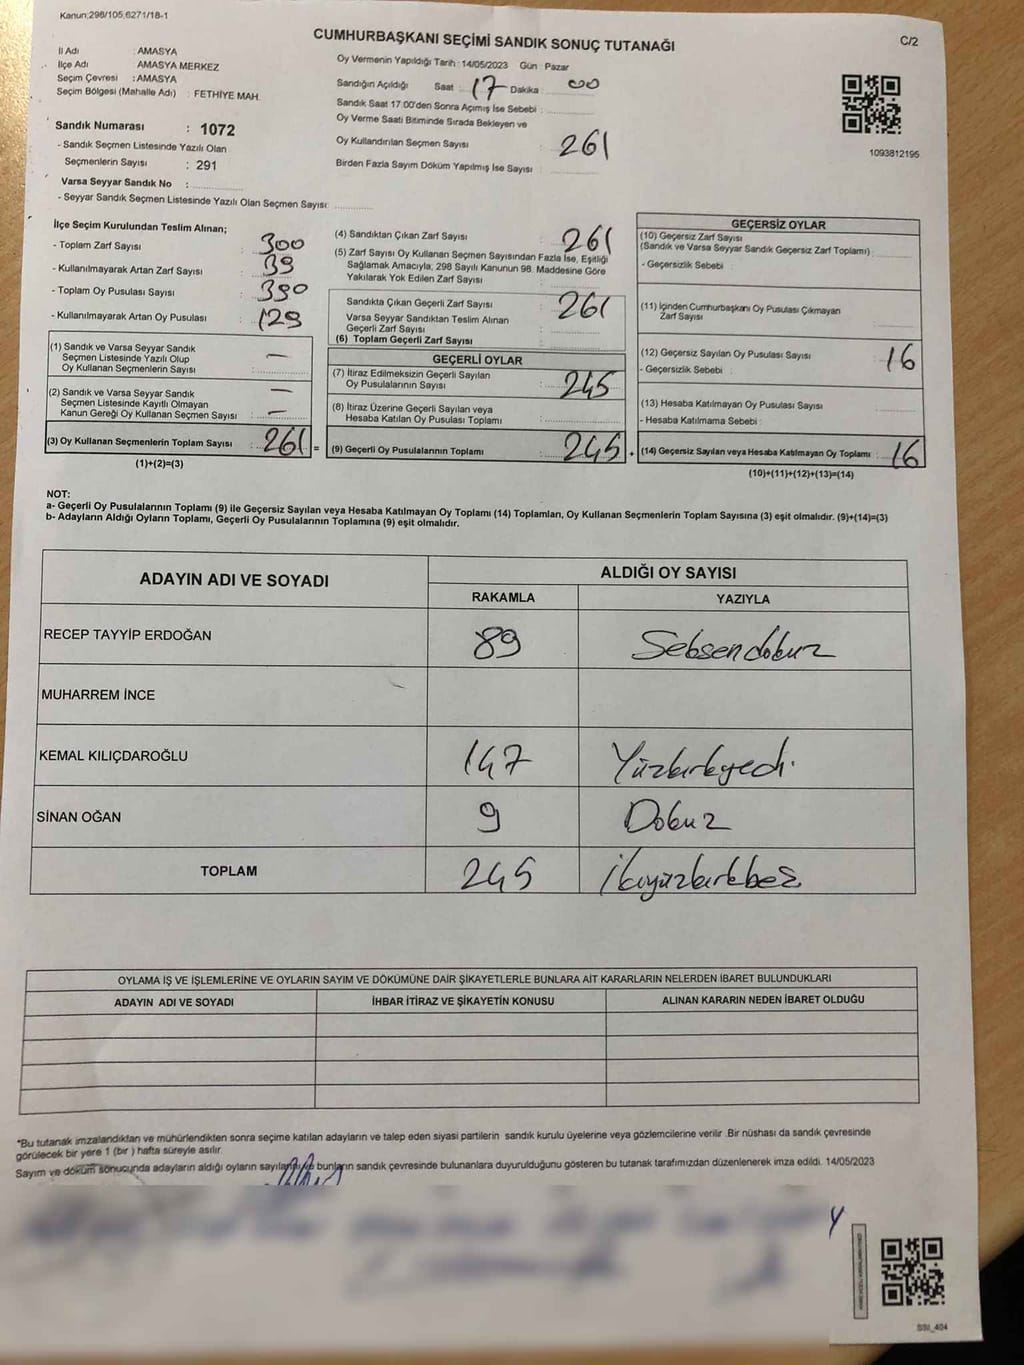 Kanun;298/105,6271/18-1
CUMHURBAŞKANI SEÇİMİ SANDIK SONUÇ TUTANAĞI
C/2
İl Adı : AMASYA
İlçe Adı AMASYA MERKEZ
Seçim Çevresi : AMASYA
Seçim Bölgesi (Mahalle Adı) : FETHİYE MAH.
Sandık Numarası : 1072
- Sandık Seçmen Listesinde Yazılı Olan
Seçmenlerin Sayısı : 291
Varsa Seyyar Sandık No :
- Seyyar Sandık Seçmen Listesinde Yazılı Olan Seçmen Sayısı:
Oy Vermenin Yapıldığı Tarih : 14/05/2023 Gün : Pazar
Sandığın Açıldığı Saat : 17 Dakika : 00
Sandık Saat 17:00'den Sonra Açımış İse Sebebi :
Oy Verme Saati Bitiminde Sırada Bekleyen ve
Oy Kullandırılan Seçmen Sayısı : 261
Birden Fazla Sayım Döküm Yapılmış İse Sayısı :
1093812195
İlçe Seçim Kurulundan Teslim Alınan;
- Toplam Zarf Sayısı : 300
- Kullanılmayarak Artan Zarf Sayısı : 39
- Toplam Oy Pusulası Sayısı : 390
- Kullanılmayarak Artan Oy Pusulası : 129
(1) Sandık ve Varsa Seyyar Sandık
Seçmen Listesinde Yazılı Olup
Oy Kullanan Seçmenlerin Sayısı : —
(2) Sandık ve Varsa Seyyar Sandık —
Seçmen Listesinde Kayıtlı Olmayan
Kanun Gereği Oy Kullanan Seçmen Sayısı : —
(3) Oy Kullanan Seçmenlerin Toplam Sayısı : 261 =
(1)+(2)=(3)
(4) Sandıktan Çıkan Zarf Sayısı : 261
(5) Zarf Sayısı Oy Kullanan Seçmen Sayısından Fazla İse, Eşitliği
Sağlamak Amacıyla, 298 Sayılı Kanunun 98. Maddesine Göre
Yakılarak Yok Edilen Zarf Sayısı :
Sandıkta Çıkan Geçerli Zarf Sayısı : 261
Varsa Seyyar Sandıktan Teslim Alınan
Geçerli Zarf Sayısı :
(6) Toplam Geçerli Zarf Sayısı
GEÇERLİ OYLAR
(7) İtiraz Edilmeksizin Geçerli Sayılan
Oy Pusulalarının Sayısı : 245
(8) İtiraz Üzerine Geçerli Sayılan veya
Hesaba Katılan Oy Pusulası Toplamı :
(9) Geçerli Oy Pusulalarının Toplamı : 245 +
GEÇERSİZ OYLAR
(10) Geçersiz Zarf Sayısı
(Sandık ve Varsa Seyyar Sandık Geçersiz Zarf Toplamı) :
- Geçersizlik Sebebi :
(11) İçinden Cumhurbaşkanı Oy Pusulası Çıkmayan
Zarf Sayısı
(12) Geçersiz Sayılan Oy Pusulası Sayısı : 16
- Geçersizlik Sebebi :
(13) Hesaba Katılmayan Oy Pusulası Sayısı :
- Hesaba Katılmama Sebebi :
(14) Geçersiz Sayılan veya Hesaba Katılmayan Oy Toplamı : 16
(10)+(11)+(12)+(13)=(14)
NOT:
a- Geçerli Oy Pusulalarının Toplamı (9) ile Geçersiz Sayılan veya Hesaba Katılmayan Oy Toplamı (14) Toplamları, Oy Kullanan Seçmenlerin Toplam Sayısına (3) eşit olmalıdır. (9)+(14)=(3)
b- Adayların Aldığı Oyların Toplamı, Geçerli Oy Pusulalarının Toplamına (9) eşit olmalıdır.
ADAYIN ADI VE SOYADI
ALDIĞI OY SAYISI
RAKAMLA YAZIYLA
RECEP TAYYİP ERDOĞAN 89 Seksendokuz
MUHARREM İNCE
KEMAL KILIÇDAROĞLU 147 Yüzkırkyedi
SİNAN OĞAN 9 Dokuz
TOPLAM 245 ikiyüzkırkbeş
OYLAMA İŞ VE İŞLEMLERİNE VE OYLARIN SAYIM VE DÖKÜMÜNE DAİR ŞİKAYETLERLE BUNLARA AİT KARARLARIN NELERDEN İBARET BULUNDUKLARI
ADAYIN ADI VE SOYADI İHBAR İTİRAZ VE ŞİKAYETİN KONUSU ALINAN KARARIN NEDEN İBARET OLDUĞU
*Bu tutanak imzalandıktan ve mühürlendikten sonra seçime katılan adayların ve talep eden siyasi partilerin sandık kurulu üyelerine veya gözlemcilerine verilir .Bir nüshası da sandık çevresinde
görülecek bir yere 1 (bir ) hafta süreyle asılır.
Sayım ve döküm sonucunda adayların aldığı oyların sayılarını ve bunların sandık çevresinde bulunanlara duyurulduğunu gösteren bu tutanak tarafımızdan düzenlenerek imza edildi. 14/05/2023
SSI_404